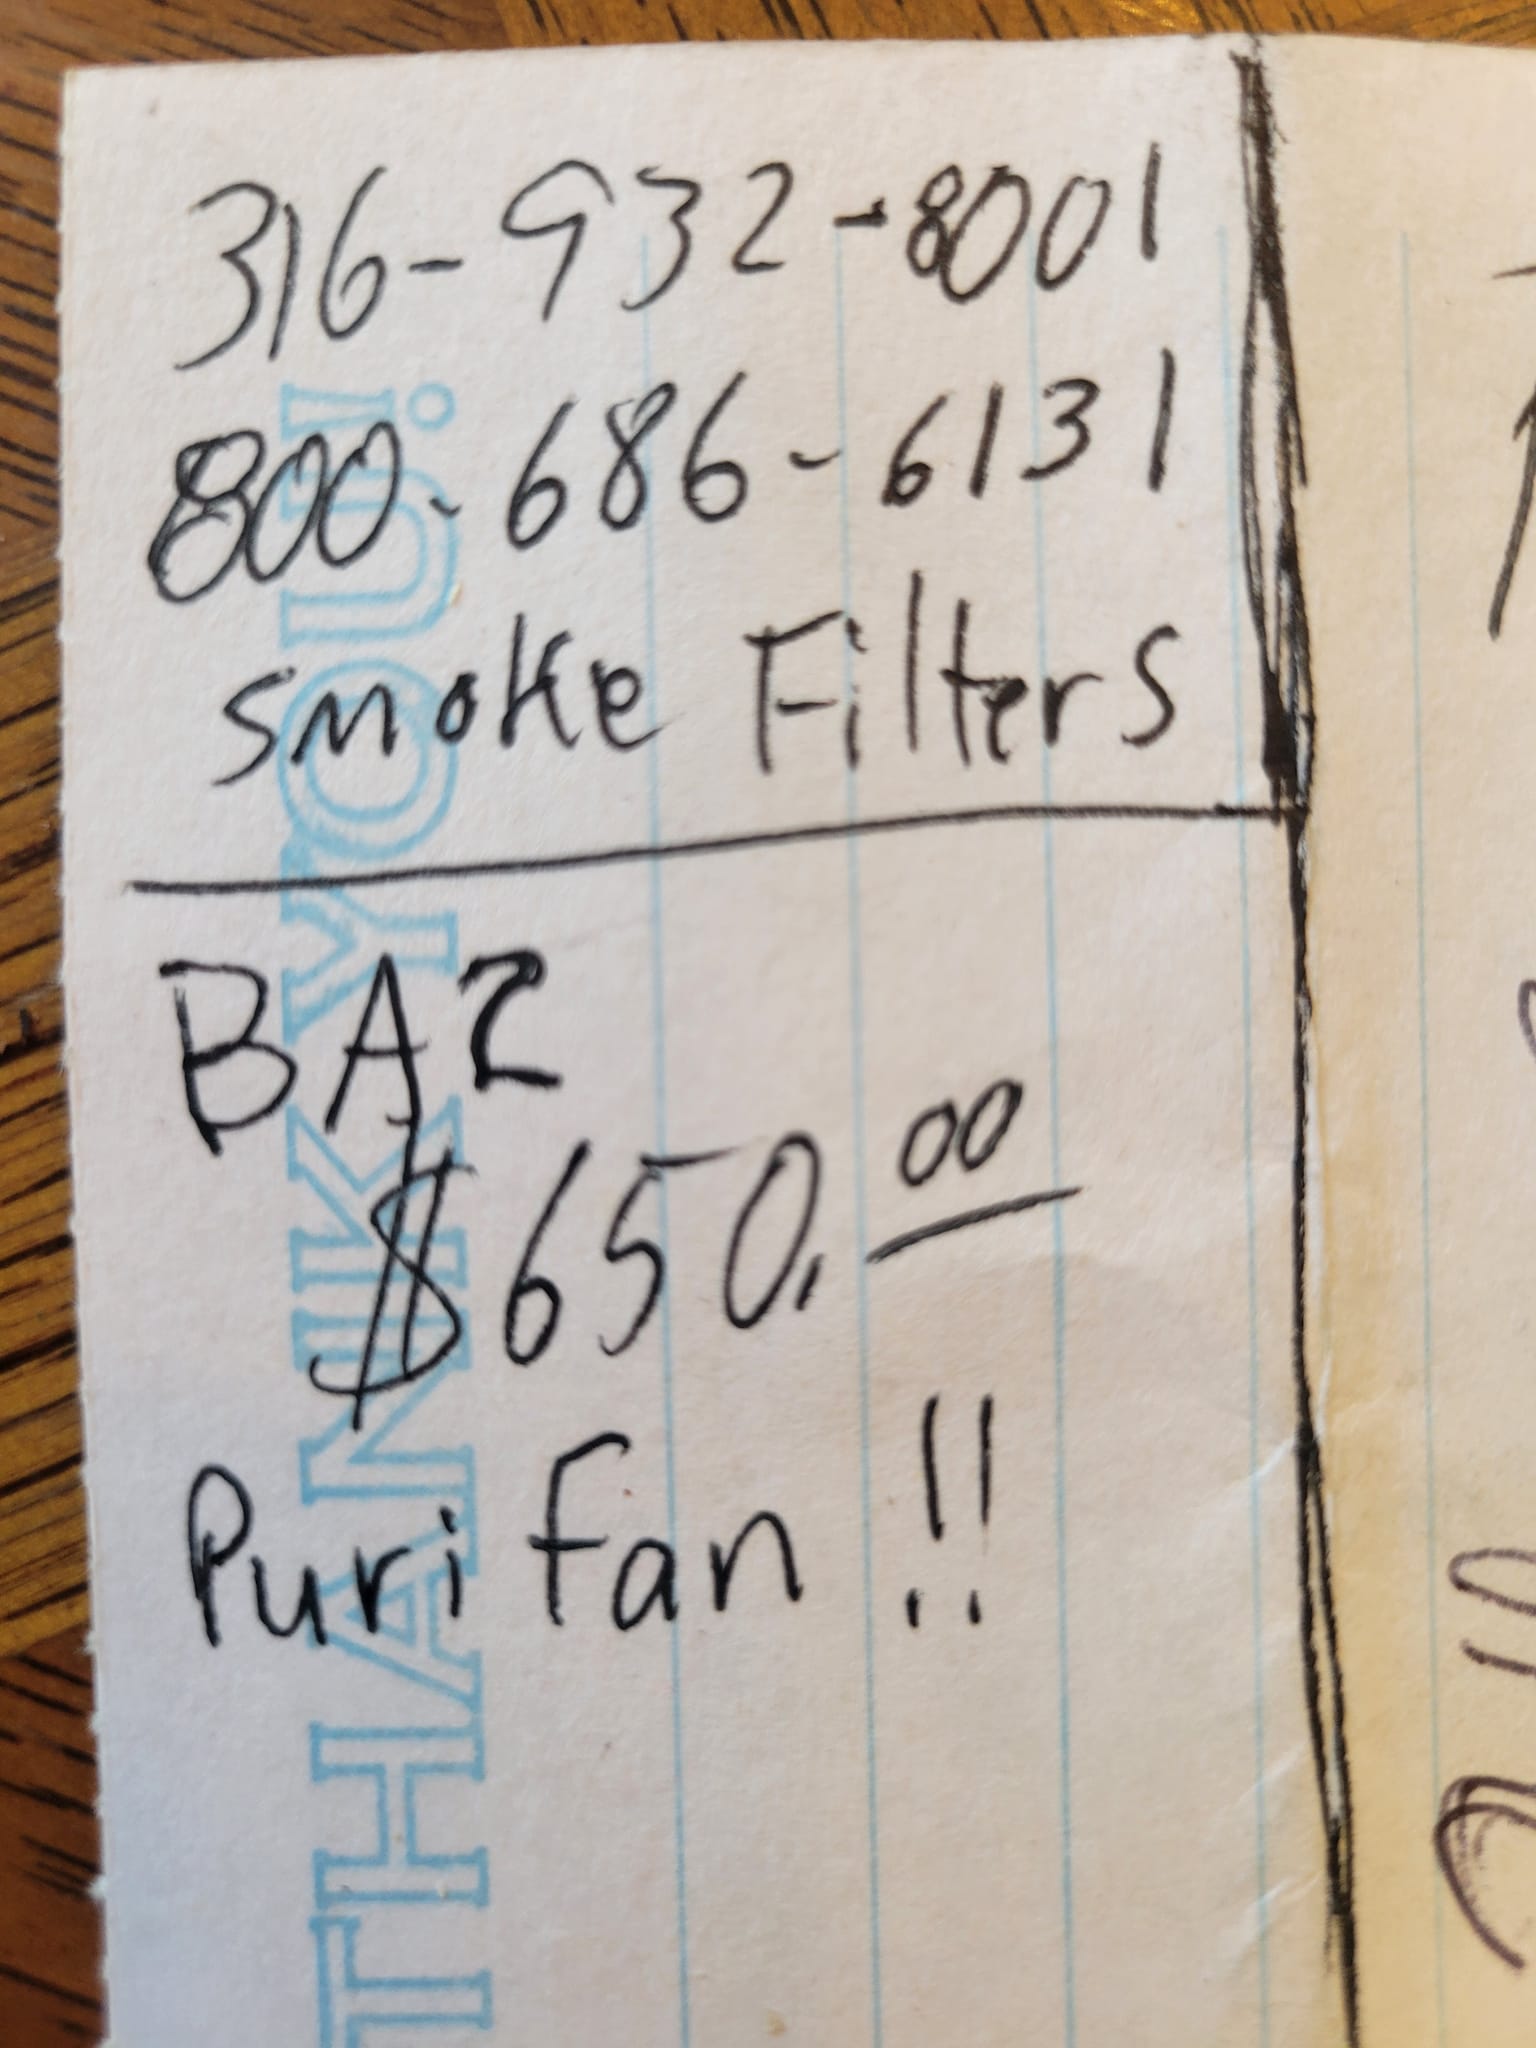 316-932-8001
800-686-6131
smoke Filters
BA2
$650.00
Puri fan !!
THANK YOU!